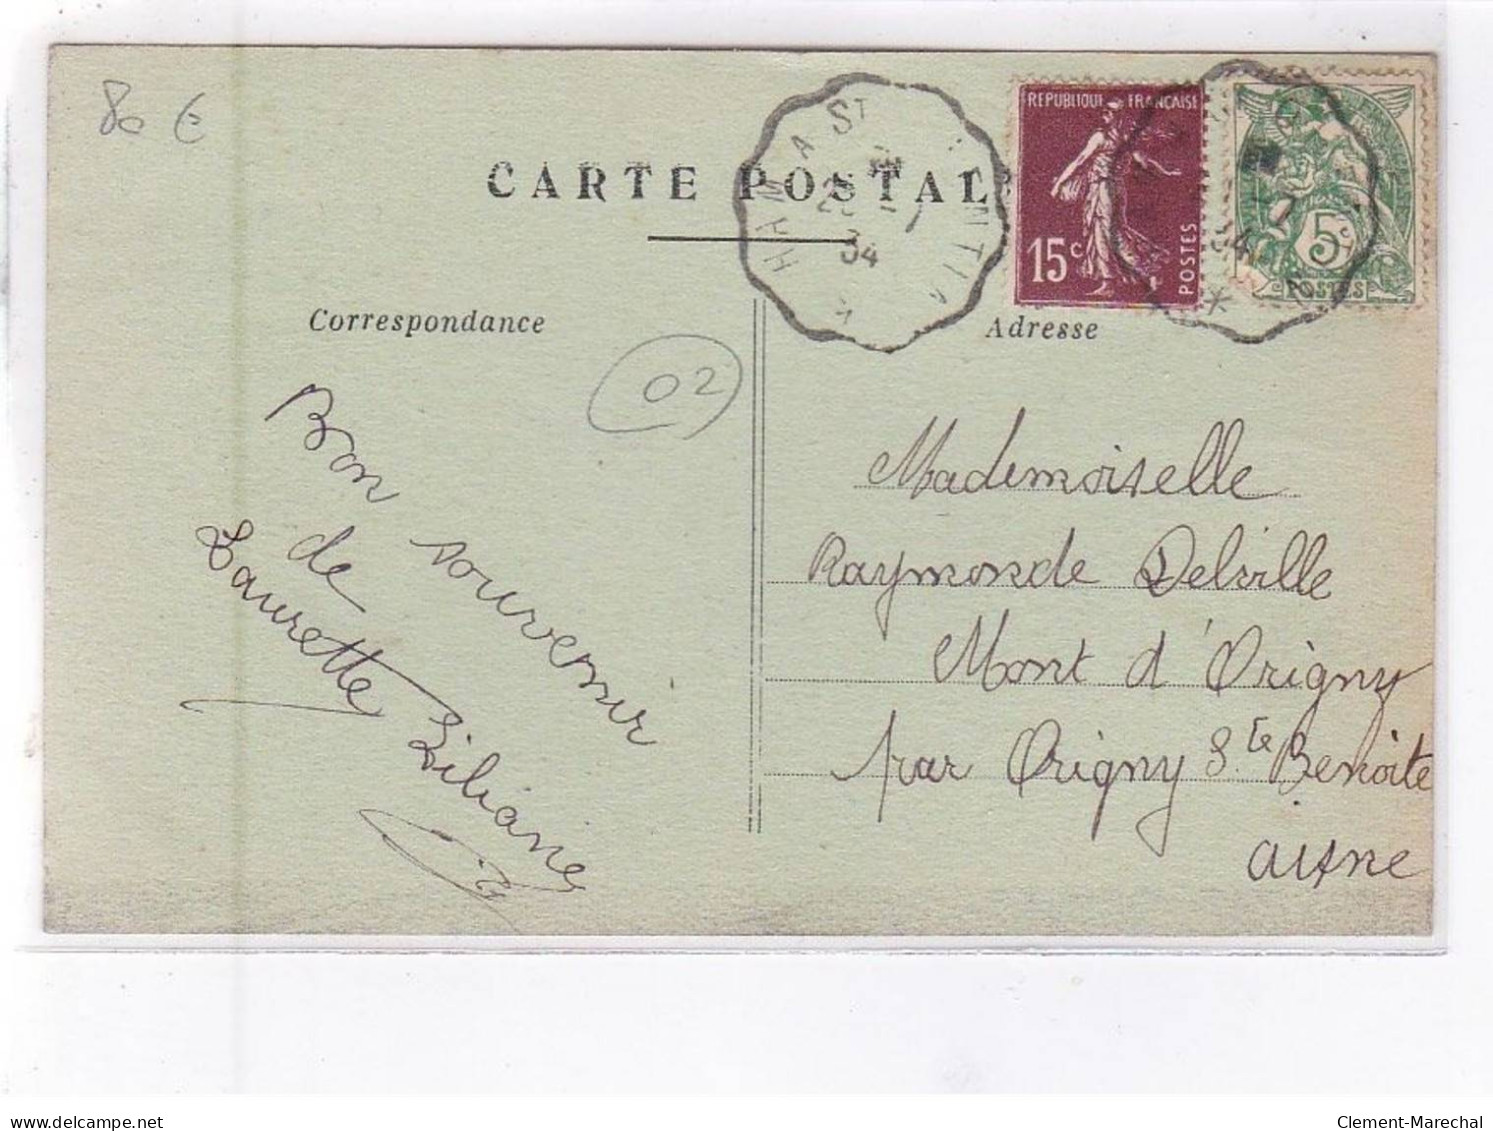 80 €
CARTE POSTALE
Correspondance
Adresse
02
HAM A ST
34
34
REPUBLIQUE FRANÇAISE
15c
POSTES
5c
POSTES
Bon souvenir
de
Laurette Liliane
Mademoiselle
Raymonde Delville
Mont d'Origny
par Origny Ste Benoite
Aisne
delcampe.net
Clement-Marechal